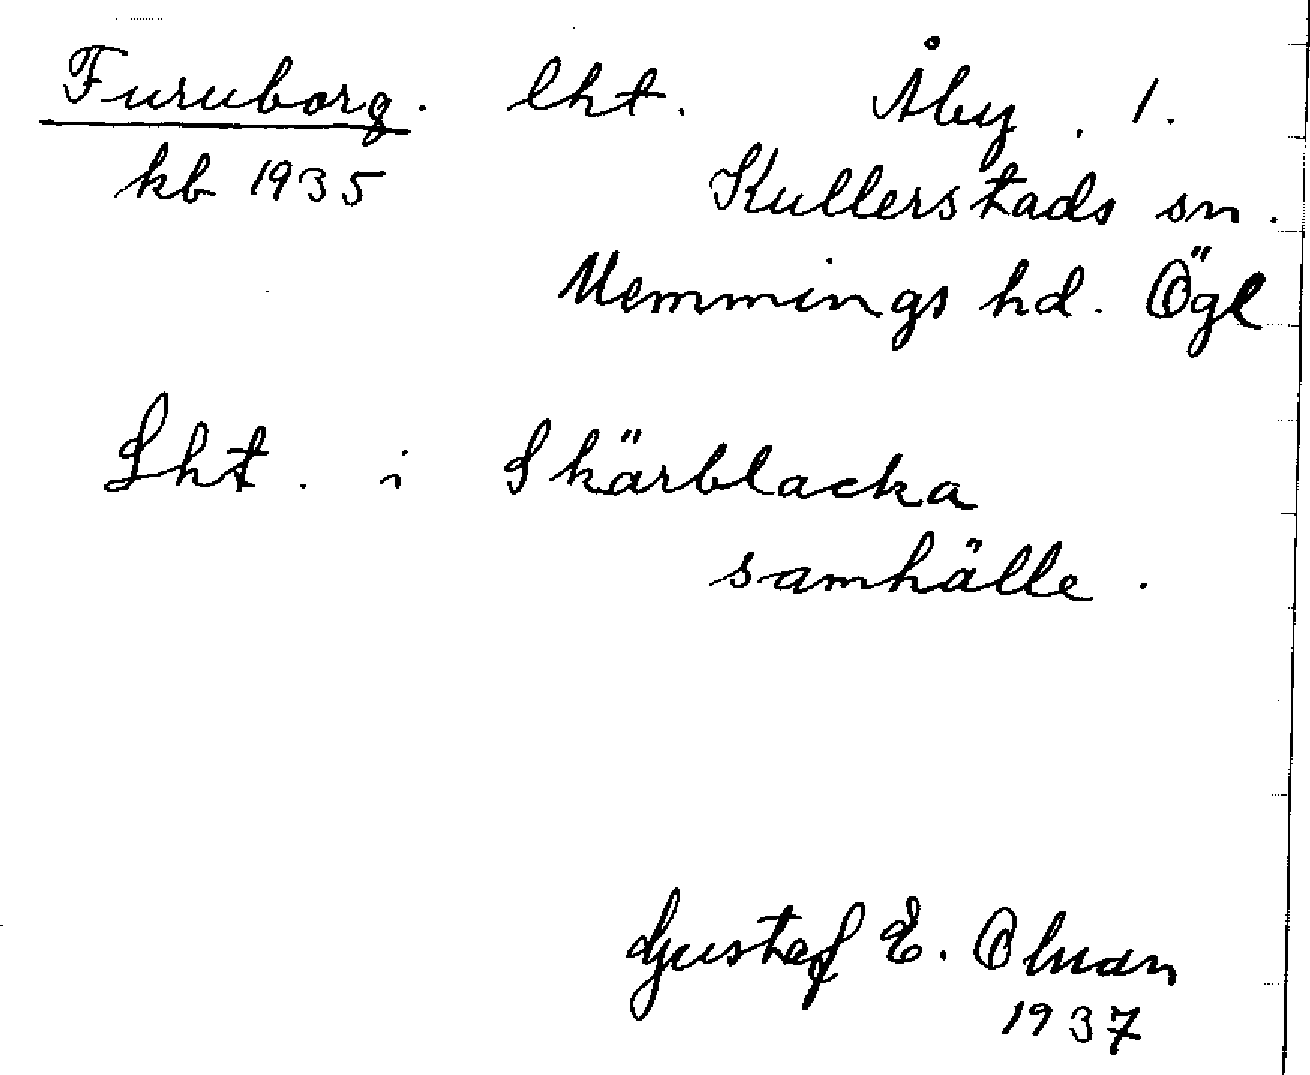 Furuborg. lht. Åby. 1.
kb 1935 Kullerstads sn.
Memmings hd. Ögl
Lht. i Skärblacka
samhälle.
Gustaf E.
1937